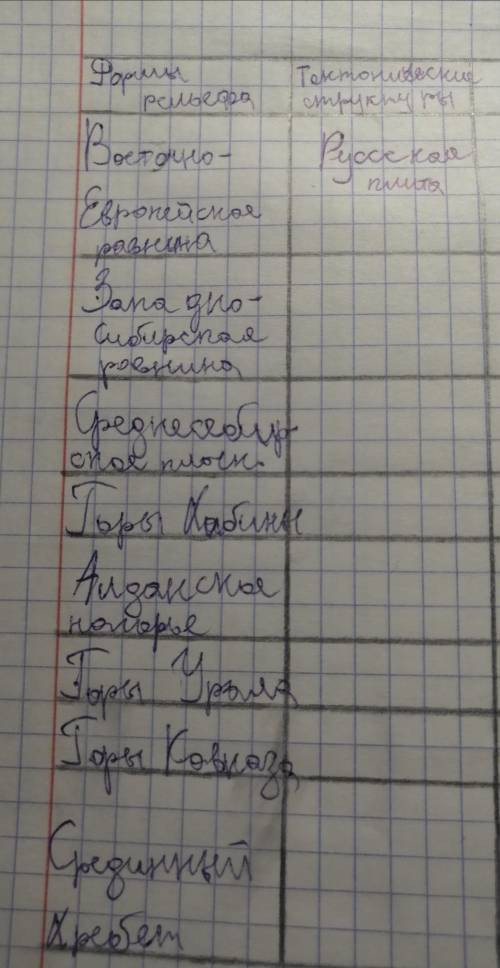 Формы
рельефа
Тектонические
структуры
Восточно-
Европейская
равнина
Русская
плита
Западно-
Сибирская
равнина
Среднесибир-
ское плоск.
Горы Хибины
Алданское
нагорье
Горы Урала
Горы Кавказа
Срединный
Хребет